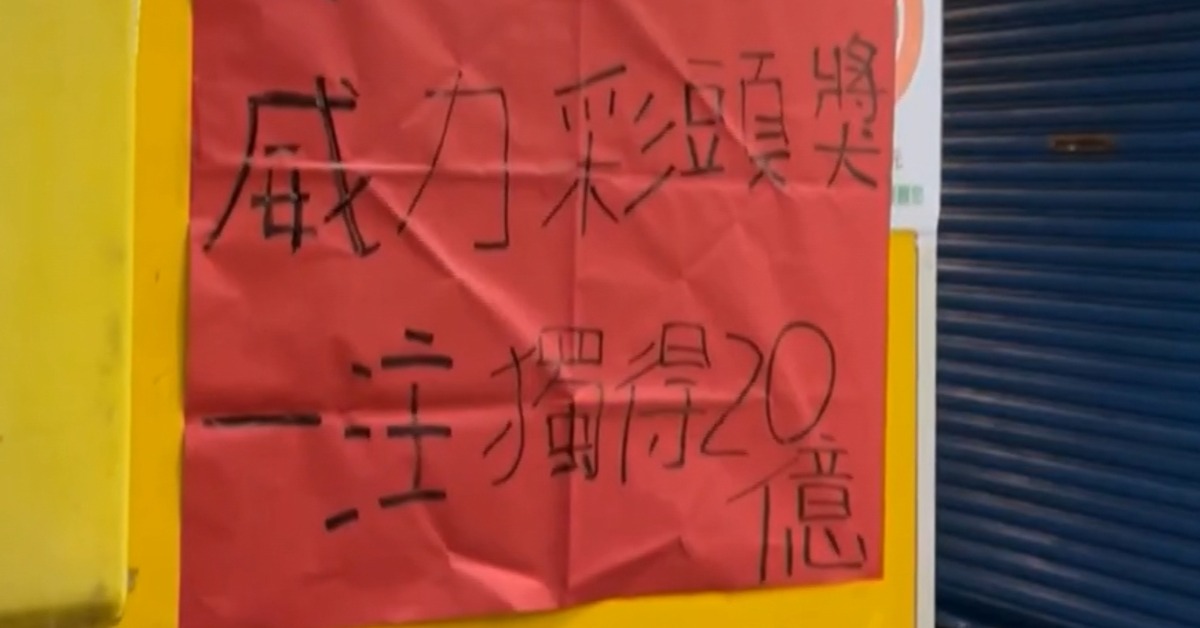 威力彩頭獎
一注獨得20
億